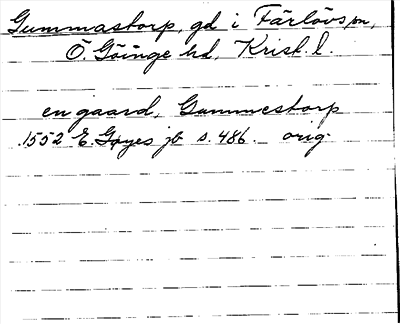 Gummastorp, gd i Färlövs sn,
Ö. Göinge hd, Krist. l.
en gaard, Gummestorp
1552 E. Gøyes jb s. 486. orig.